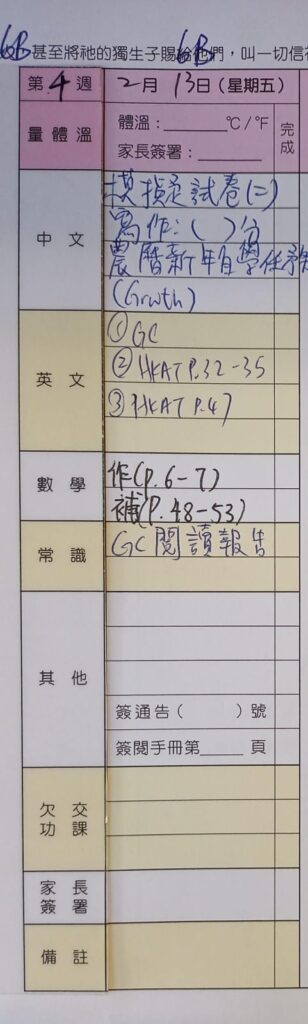 6B 甚至將祂的獨生子賜給他們，叫一切信
6B
第 4 週 2月 13日 (星期五)
量體溫 體溫：______ °C / °F 完成
家長簽署：______
中文 模擬試卷(二)
寫作：( )分
農曆新年自學任務
(Grwth)
英文 ① GC
② HKAT P.32-35
③ HKAT P.47
數學 作(P.6-7)
補(P.48-53)
常識 GC 閱讀報告
其他
簽通告 ( ) 號
簽閱手冊第______ 頁
欠交功課
家長簽署
備註